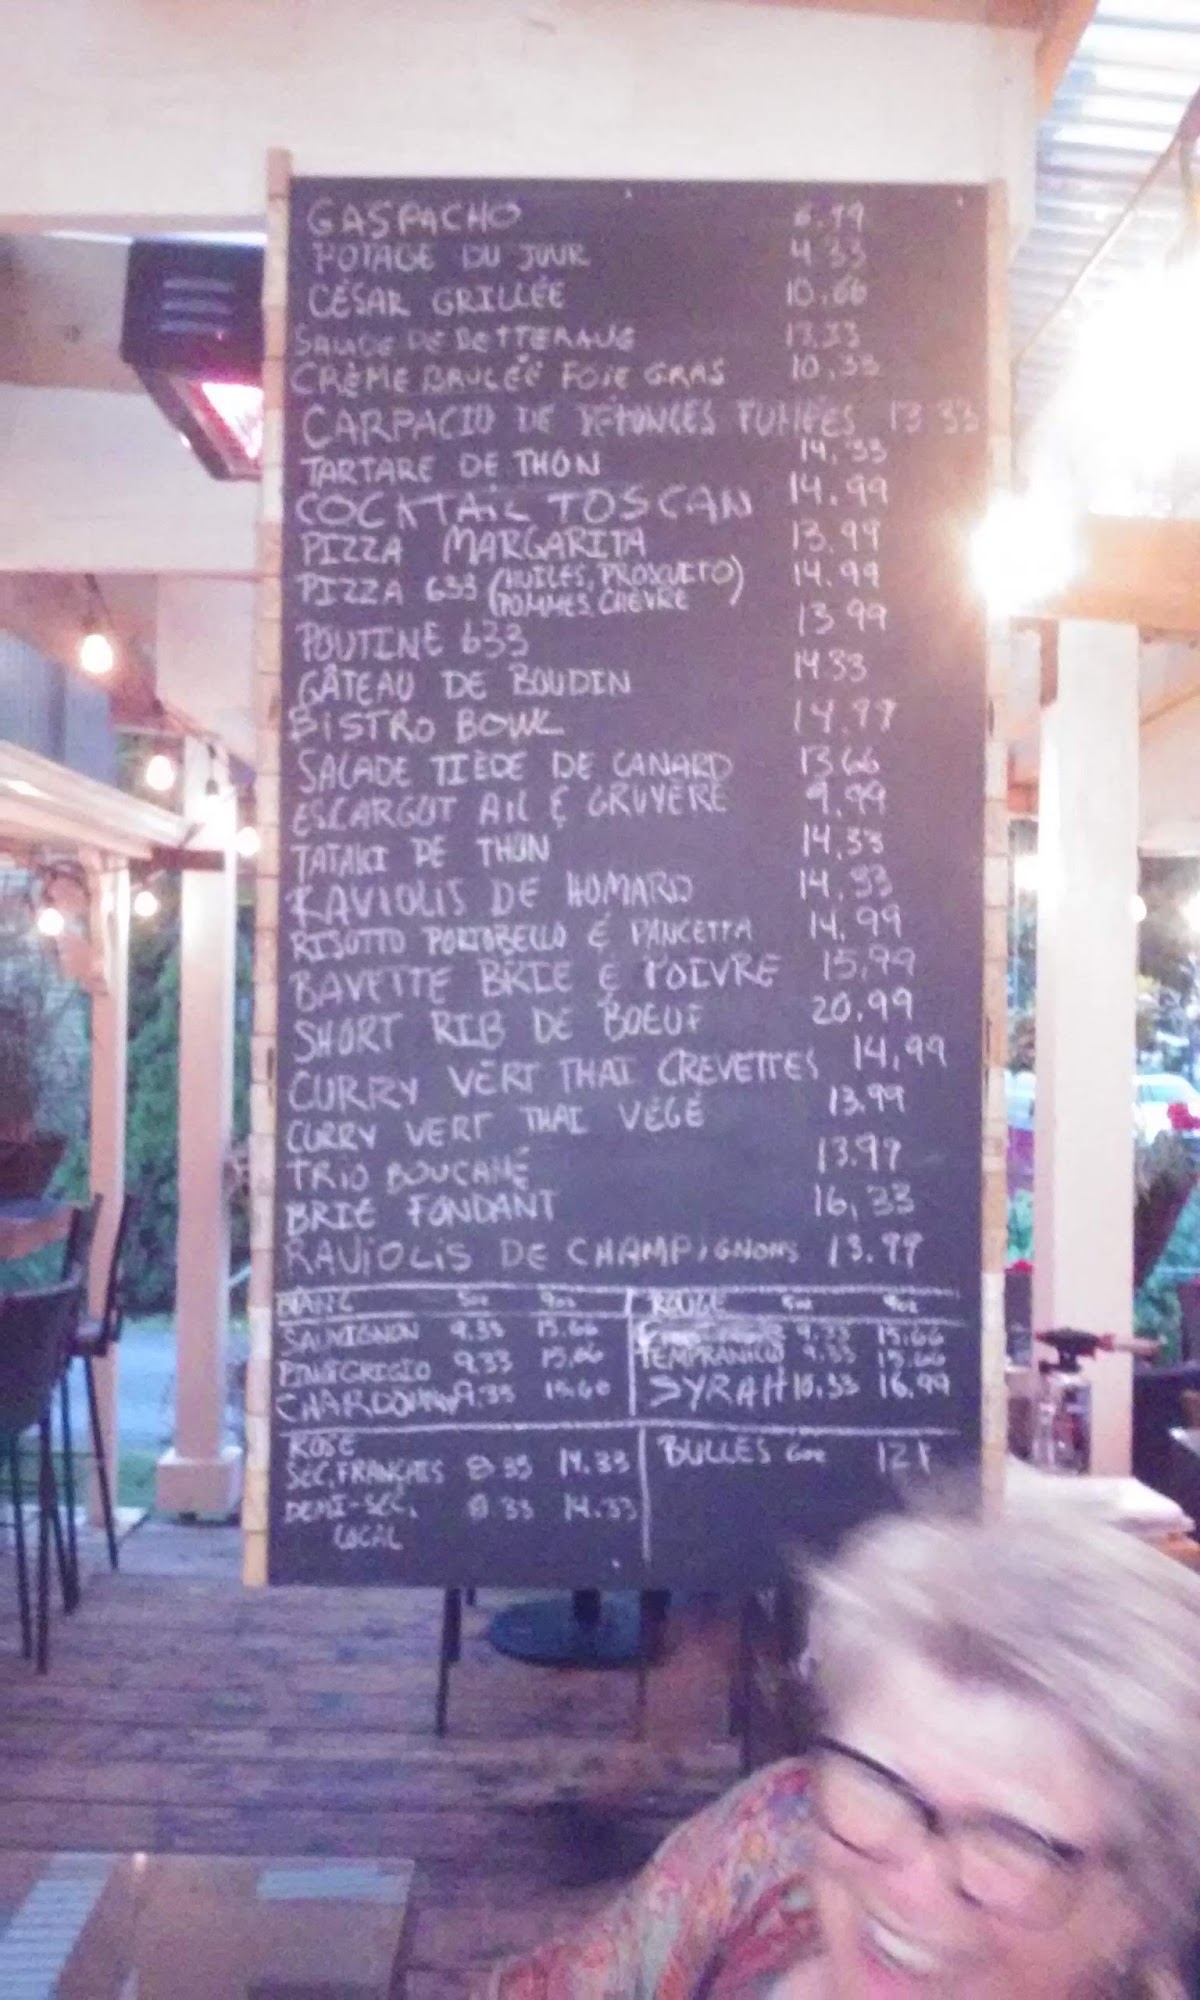 GASPACHO 6.99
POTAGE DU JOUR 4.33
CÉSAR GRILLÉE 10.66
SALADE DE BETTERAVE 13.33
CRÈME BRULÉE FOIE GRAS 10.33
CARPACIO DE PÉTONCLES FUMÉES 13.33
TARTARE DE THON 14.33
COCKTAIL TOSCAN 14.99
PIZZA MARGARITA 13.99
PIZZA 633 (HUILES, PROSQUITO) 14.99
POMMES, CHÈVRE
POUTINE 633 13.99
GÂTEAU DE BOUDIN 14.33
BISTRO BOWL 14.99
SALADE TIÈDE DE CANARD 13.66
ESCARGOT AIL & GRUYERE 9.99
TATAKI DE THON 14.33
RAVIOLIS DE HOMARD 14.33
RISOTTO PORTOBELLO & PANCETTA 14,99
BAVETTE BRIE & POIVRE 15,99
SHORT RIB DE BOEUF 20.99
CURRY VERT THAI CREVETTES 14,99
CURRY VERT THAI VÉGÉ 13.99
TRIO BOUCANÉ 13.99
BRIE FONDANT 16,33
RAVIOLIS DE CHAMPIGNONS 13.99
BLANC 5oz 9oz ROUGE 5oz 9oz
SAUVIGNON 9.33 15.66 9.33 15.66
PINOT GRIGIO 9.33 15.66 TEMPRANILLO 9.33 15.66
CHARDONNAY 9.33 15.66 SYRAH 10.33 16.99
ROSE BULLES 6oz 12
SEC, FRANÇAIS 8.33 14.33
DEMI-SEC, 8.33 14.33
LOCAL